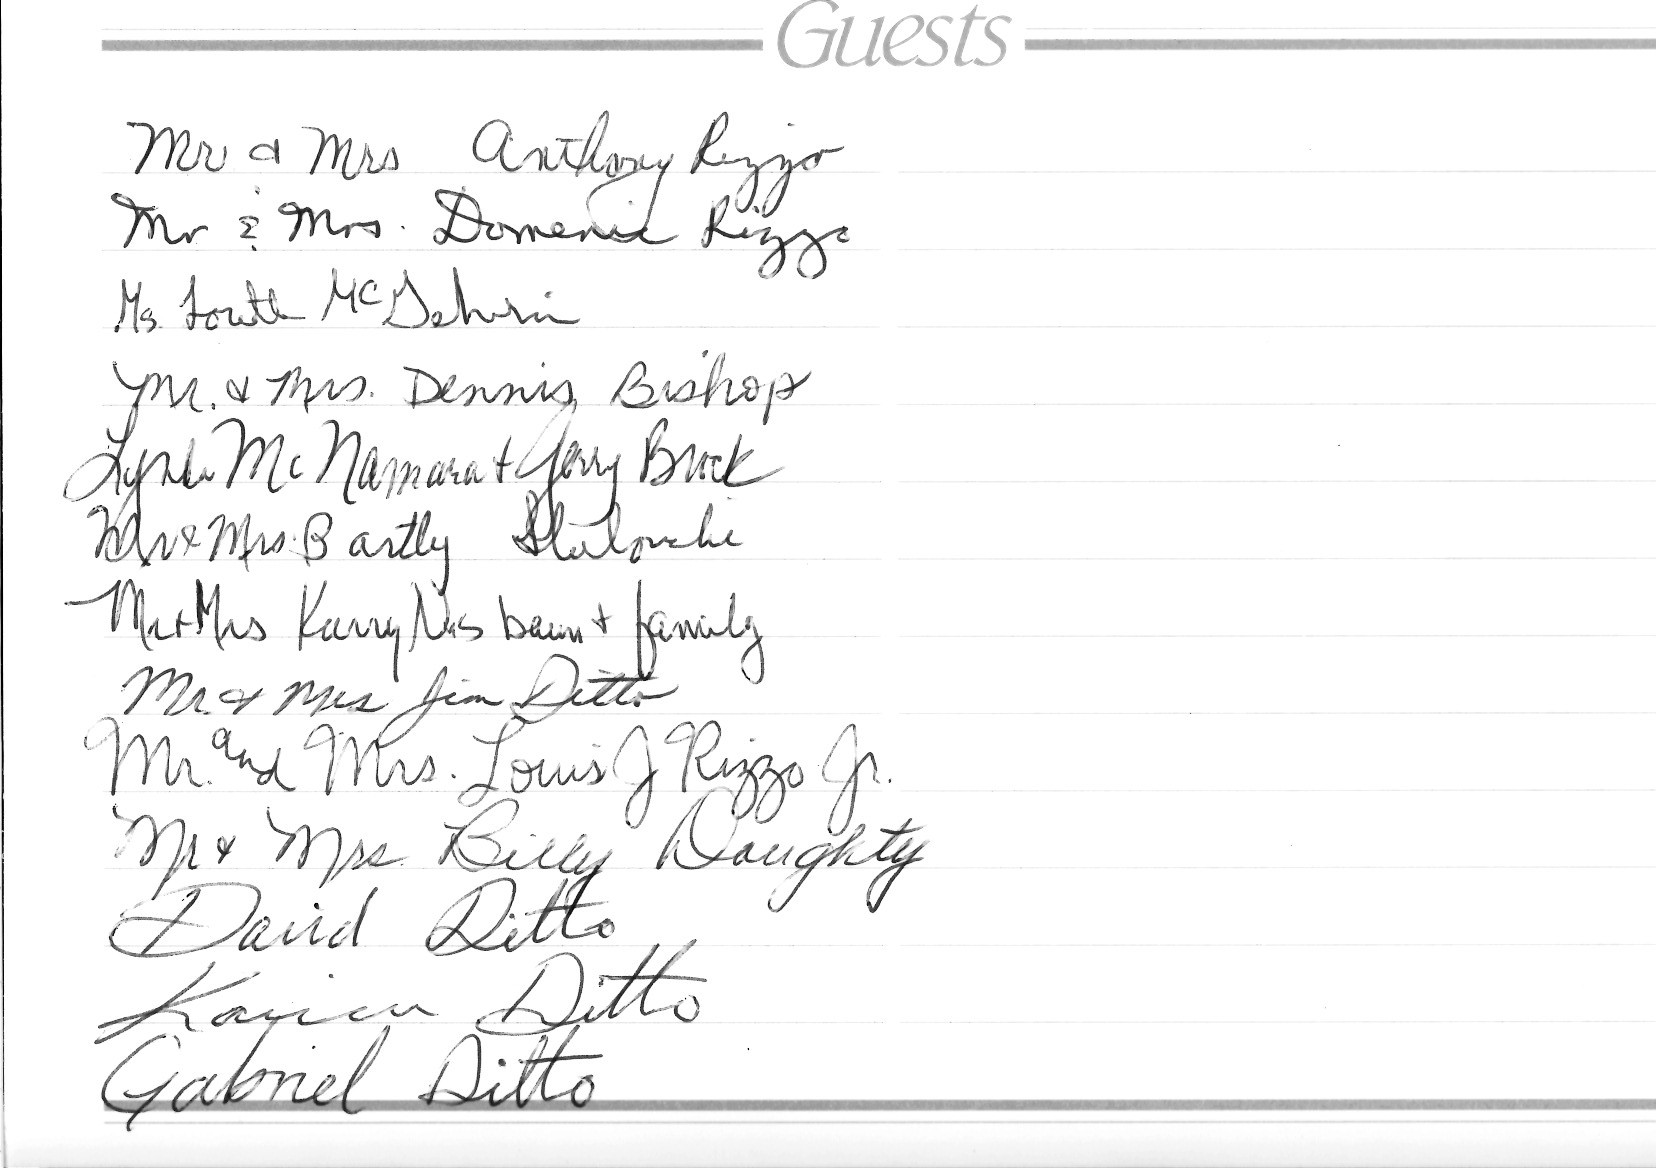 Guests
Mr & Mrs Anthony Rizzo
Mr & Mrs. Domenic Rizzo
Ms.
Mr. & Mrs. Dennis Bishop
Lynda McNamara + Gerry Brock
Mr & Mrs. Bartly
Mr + Mrs Karry Nusbaum + family
Mr. & Mrs Jim Ditto
Mr. and Mrs. Louis J Rizzo Jr.
Mr & Mrs. Billy Doughty
David Ditto
Ditto
Gabriel Ditto